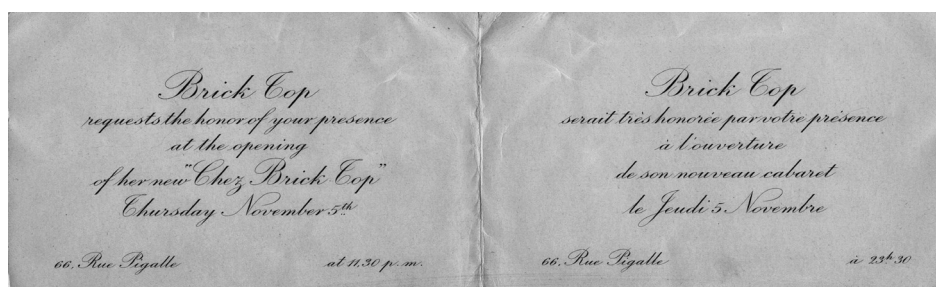 Brick Top
requests the honor of your presence
at the opening
of her new "Chez Brick Top"
Thursday November 5th
66, Rue Pigalle at 11.30 p.m.
Brick Top
serait très honorée par votre présence
à l'ouverture
de son nouveau cabaret
le Jeudi 5 Novembre
66, Rue Pigalle à 23h 30